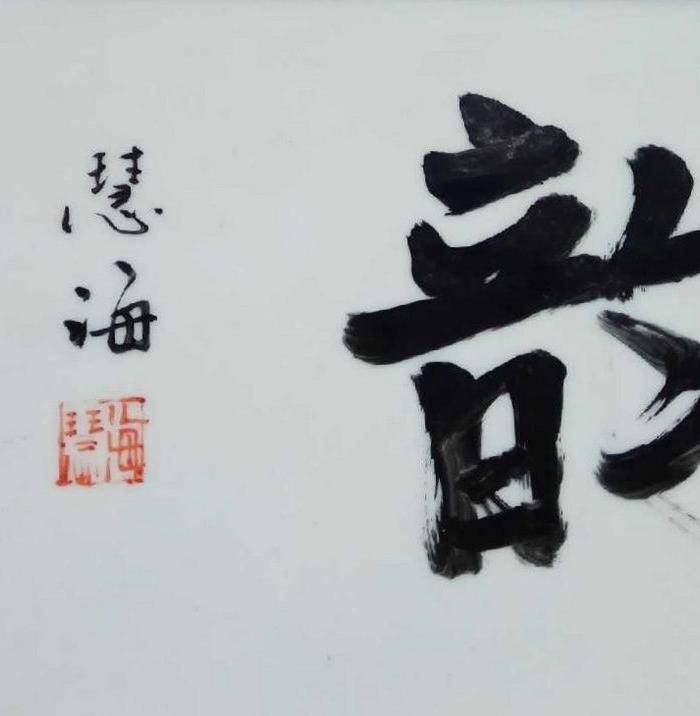 韵
慧海
慧海